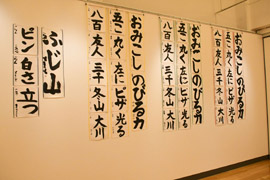 おみこしのびる力
五こ 丸く 左に ヒザ 光る
八百 友人 三千 冬山 大川
おみこしのびる力
五こ 丸く 左に ヒザ 光る
八百 友人 三千 冬山 大川
おみこしのびる力
五こ 丸く 左に ヒザ 光る
八百 友人 三千 冬山 大川
ふじ山
ピン 白さ 立つ